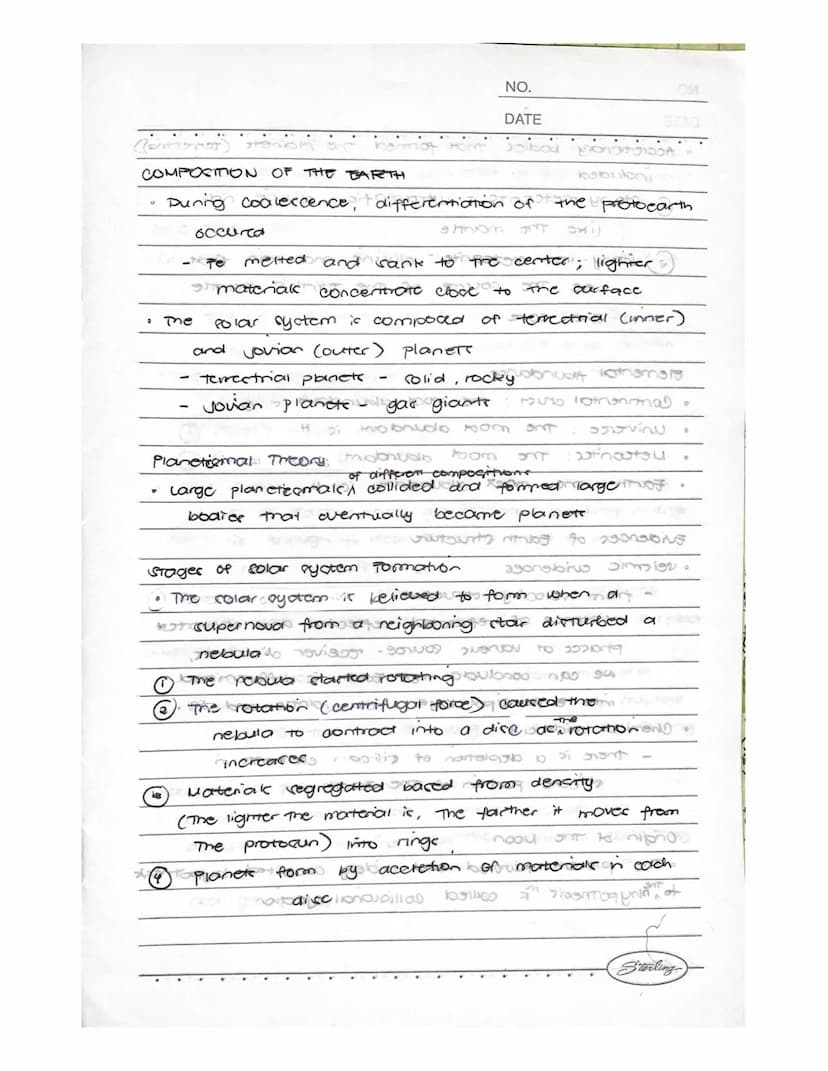 NO.
DATE
COMPOSITION OF THE EARTH
• During coalescence, differentiation of the protoearth
occured
- Fe melted and sank to the center; lighter
materials concentrate close to the surface
• The solar system is composed of terrestrial (inner)
and jovian (outter) planets
- terrestrial planets - solid, rocky
- Jovian planets - gas giants
Planetismal Theory
of different compositions
• Large planetesmals ^ collided and formed large
bodies that eventually became planets
Stages of solar system formation
• The solar system is believed to form when a
supernova from a neighboring star disturbed a
nebula
① The nebula started rotating
② The rotation (centrifugal force) caused the
nebula to contract into a disc as ^the rotation
increases
③ Materials segregated based from density
(The lighter the material is, the farther it moves from
the protosun) into rings
④ Planets form by accretion of materials in each
disc
Sterling